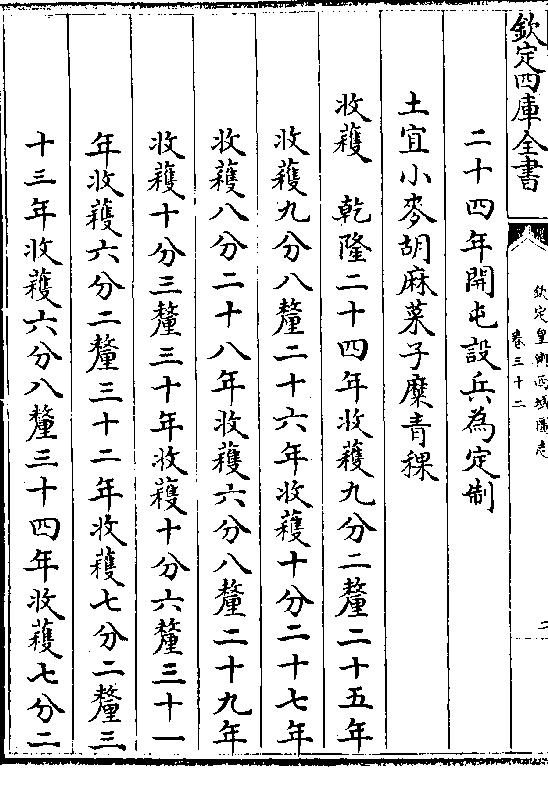 欽定四庫全書
欽定皇輿西域圖志
卷三十二
二
二十四年開屯設兵為定制
土宜小麥胡麻菜子糜青稞
收穫　乾隆二十四年收穫九分二釐二十五年
收穫九分八釐二十六年收穫十分二十七年
收穫八分二十八年收穫六分八釐二十九年
收穫十分三釐三十年收穫十分六釐三十一
年收穫六分二釐三十二年收穫七分二釐三
十三年收穫六分八釐三十四年收穫七分二